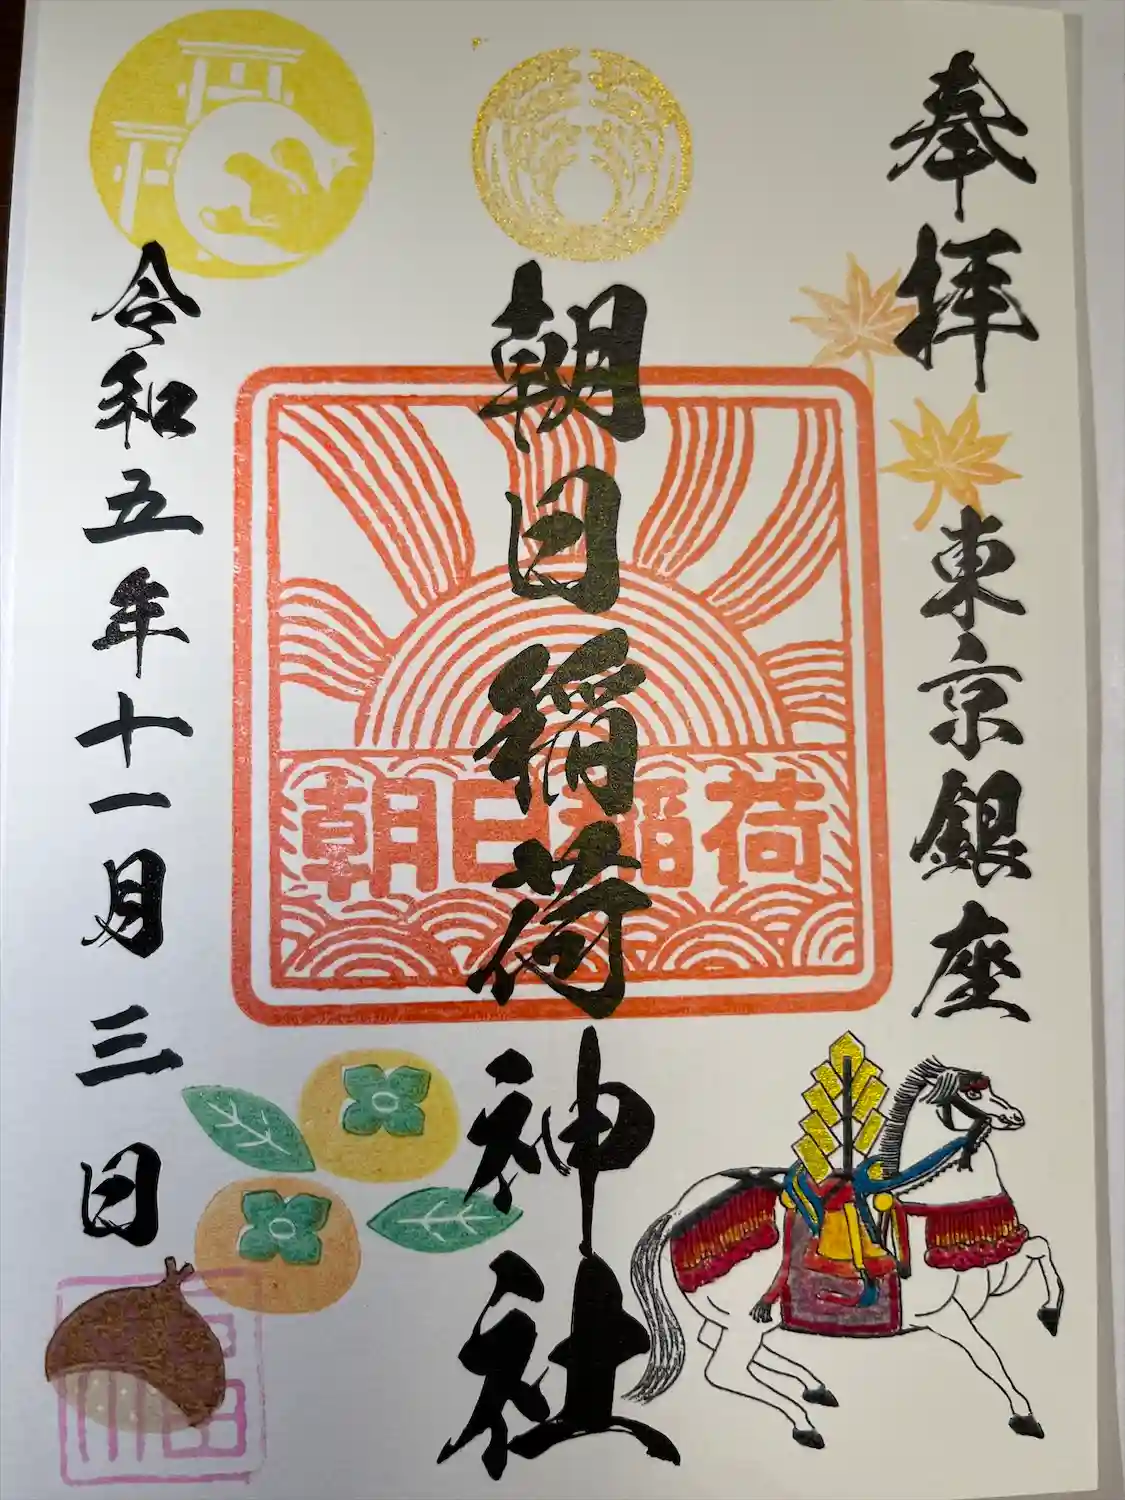 奉拝
東京銀座
朝日稲荷神社
朝日稲荷
令和五年十一月三日